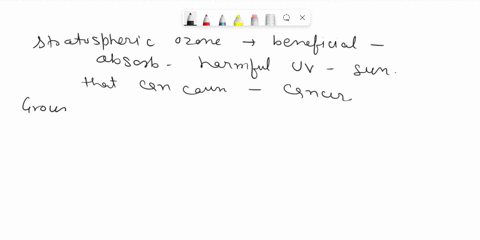 stratospheric ozone → beneficial -
absorb - harmful UV - sun.
that can caun - cancer
Groun